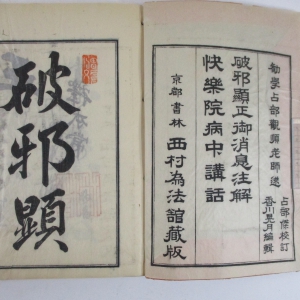 勧学占部觀順老師述
占部傑校訂
香川晃月編輯
破邪顯正御消息注解
快樂院病中講話
京都書林
西村為法館蔵版
破邪顯